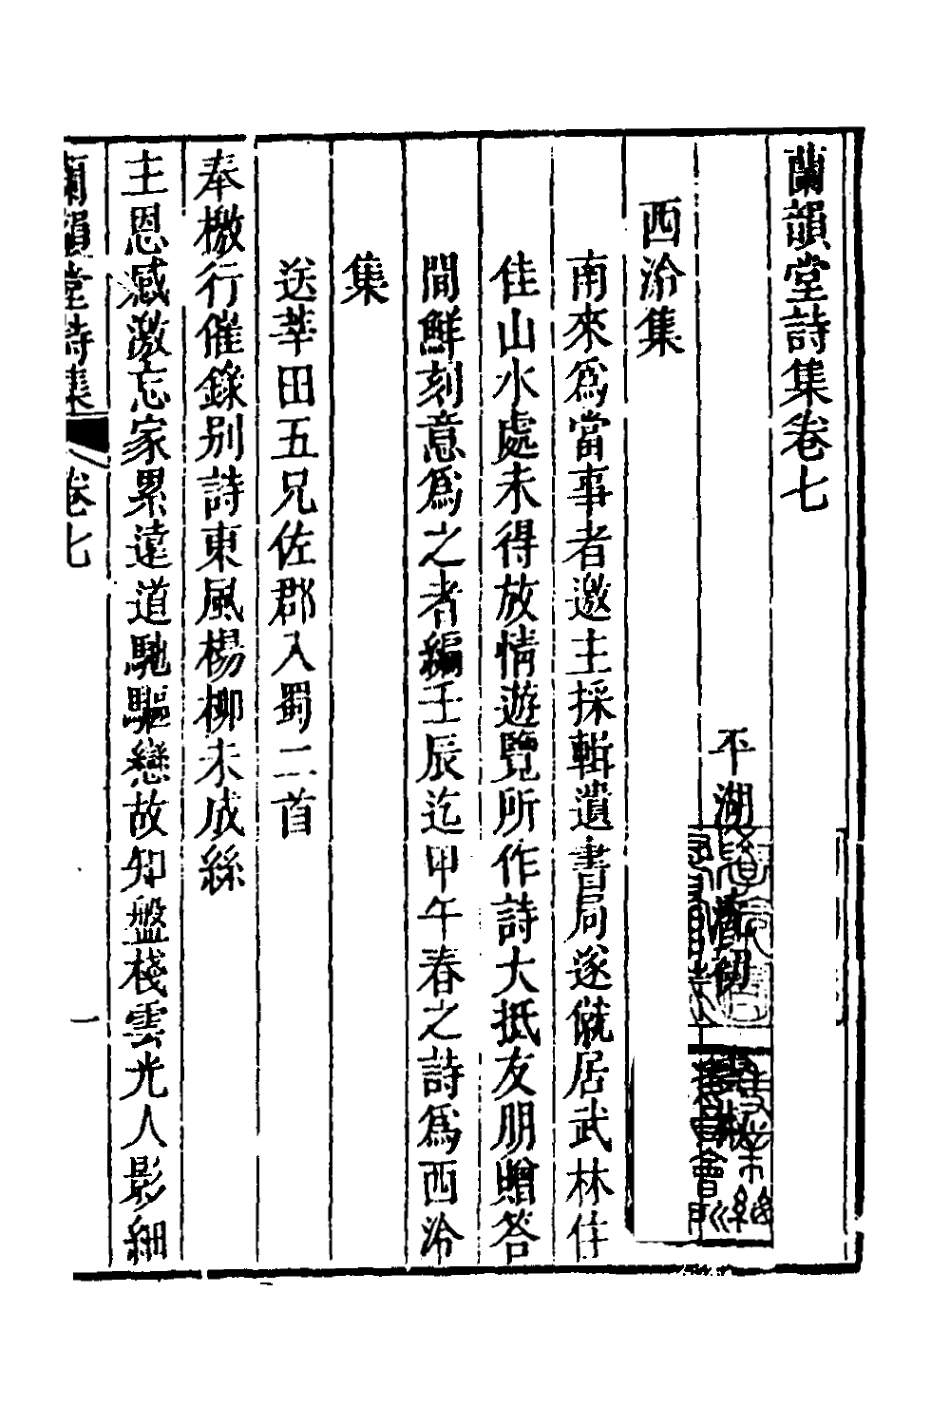 蘭韻堂詩集卷七
平湖
西泠集
南來爲當事者邀主採輯遺書局遂僦居武林住
佳山水處未得放情遊覽所作詩大抵友朋贈答
間鮮刻意爲之者編壬辰迄甲午春之詩爲西泠
集
送莘田五兄佐郡入蜀二首
奉檄行催錄別詩東風楊柳未成絲
主恩感激忘家累遠道馳驅戀故知盤棧雲光人影細
蘭韻堂詩集 卷七 一